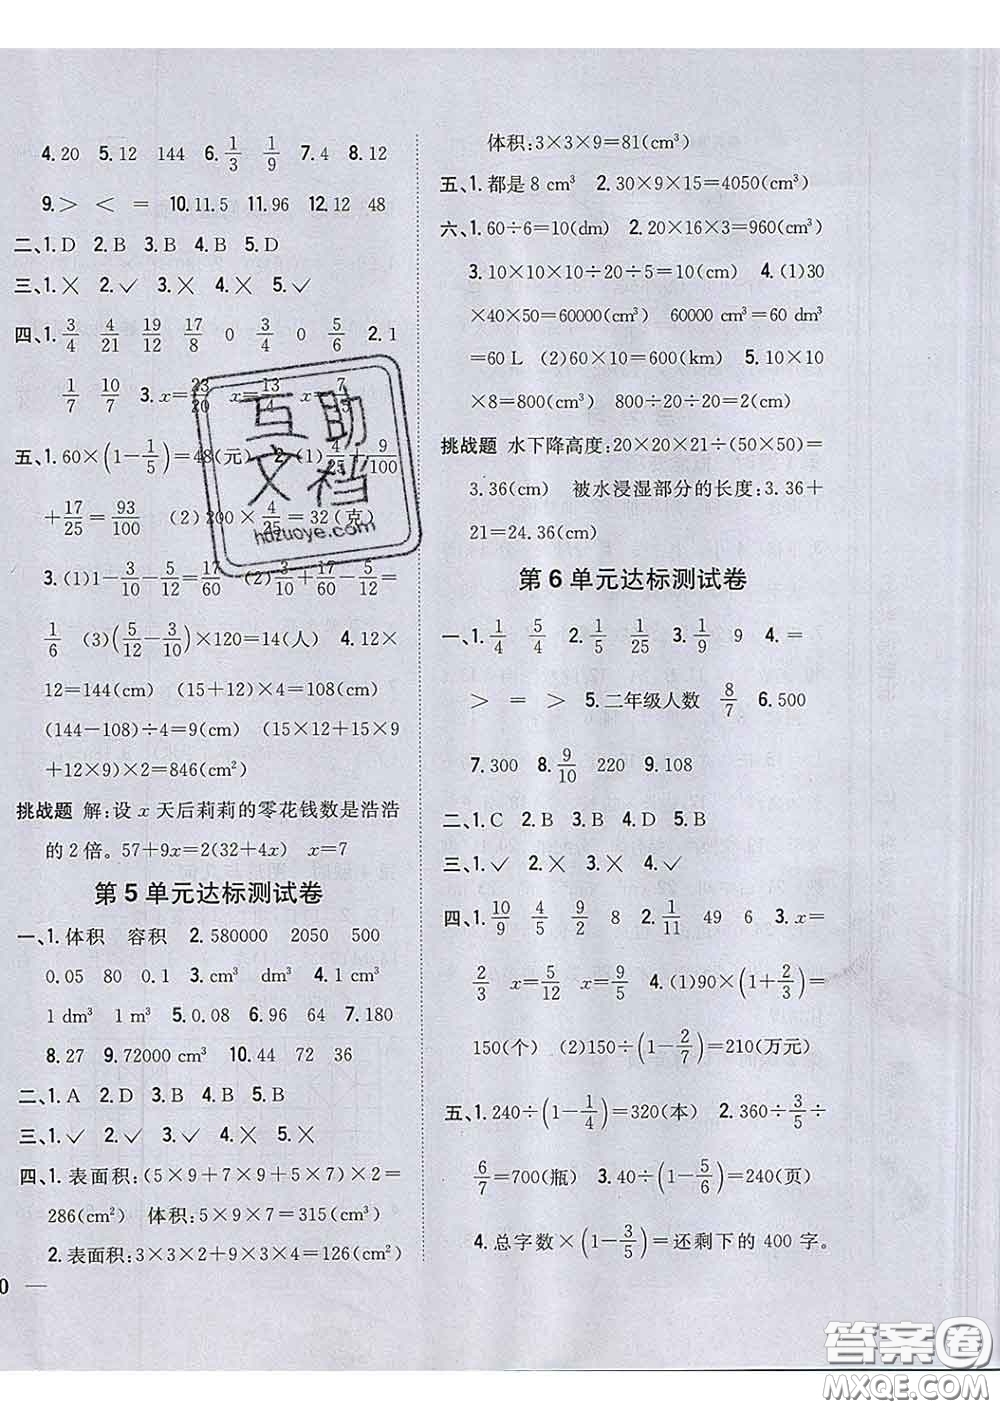 4.20 5.12 144 6.1/3 1/9 7.4 8.12
9.> < = 10.11.5 11.96 12.12 48
二、1.D 2.B 3.B 4.B 5.D
三、1.✕ 2.✓ 3.✕ 4.✕ 5.✓
四、1.3/4 4/21 19/12 17/8 0 3/4 0 5/6 2.1
1/7 10/7 3.x=23/20 x=13/4 x=7/
五、1.60×(1-1/5)=48(元) 2.(1)4/25+9/100
+17/25=93/100 (2)200×4/25=32(克)
3.(1)1-3/10-5/12=17/60 (2)3/10+17/60-5/12=
1/6 (3)(5/12-3/10)×120=14(人) 4.12×
12=144(cm) (15+12)×4=108(cm)
(144-108)÷4=9(cm) (15×12+15×9
+12×9)×2=846(cm²)
挑战题 解:设 x 天后莉莉的零花钱数是浩浩
的 2 倍。57+9x=2(32+4x) x=7
第 5 单元达标测试卷
一、1.体积 容积 2.580000 2050 500
0.05 80 0.1 3.cm³ dm³ 4.1 cm³
1 dm³ 1 m³ 5.0.08 6.96 64 7.180
8.27 9.72000 cm³ 10.44 72 36
二、1.A 2.D 3.B 4.B 5.B
三、1.✓ 2.✓ 3.✓ 4.✕ 5.✕
四、1.表面积:(5×9+7×9+5×7)×2=
286(cm²) 体积:5×9×7=315(cm³)
2.表面积:3×3×2+9×3×4=126(cm²)
0 —
体积:3×3×9=81(cm³)
五、1.都是 8 cm³ 2.30×9×15=4050(cm³)
六、1.60÷6=10(dm) 2.20×16×3=960(cm³)
3.10×10×10÷20÷5=10(cm) 4.(1)30
×40×50=60000(cm³) 60000 cm³=60 dm³
=60 L (2)60×10=600(km) 5.10×10
×8=800(cm³) 800÷20÷20=2(cm)
挑战题 水下降高度:20×20×21÷(50×50)=
3.36(cm) 被水浸湿部分的长度:3.36+
21=24.36(cm)
第 6 单元达标测试卷
一、1.1/4 5/4 2.1/5 1/25 3.1/9 9 4.=
> = > 5.二年级人数 8/7 6.500
7.300 8.9/10 220 9.108
二、1.C 2.B 3.B 4.B
三、1.✓ 2.✓ 3.✓ 4.✓
四、1.10/9 4/5 9/2 8 2.1/11 49 6 3.x=
2/3 x=5/12 x=9/5 4.(1)90×(1+2/3)=
150(个) (2)150÷(1-2/7)=210(万元)
五、1.240÷(1-1/4)=320(本) 2.360÷3/5÷
6/7=700(瓶) 3.40÷(1-5/6)=240(页)
4.总字数×(1-3/5)=还剩下的 400 字。
互助
文档
hdzuoye.com
答案卷
MXQE.COM